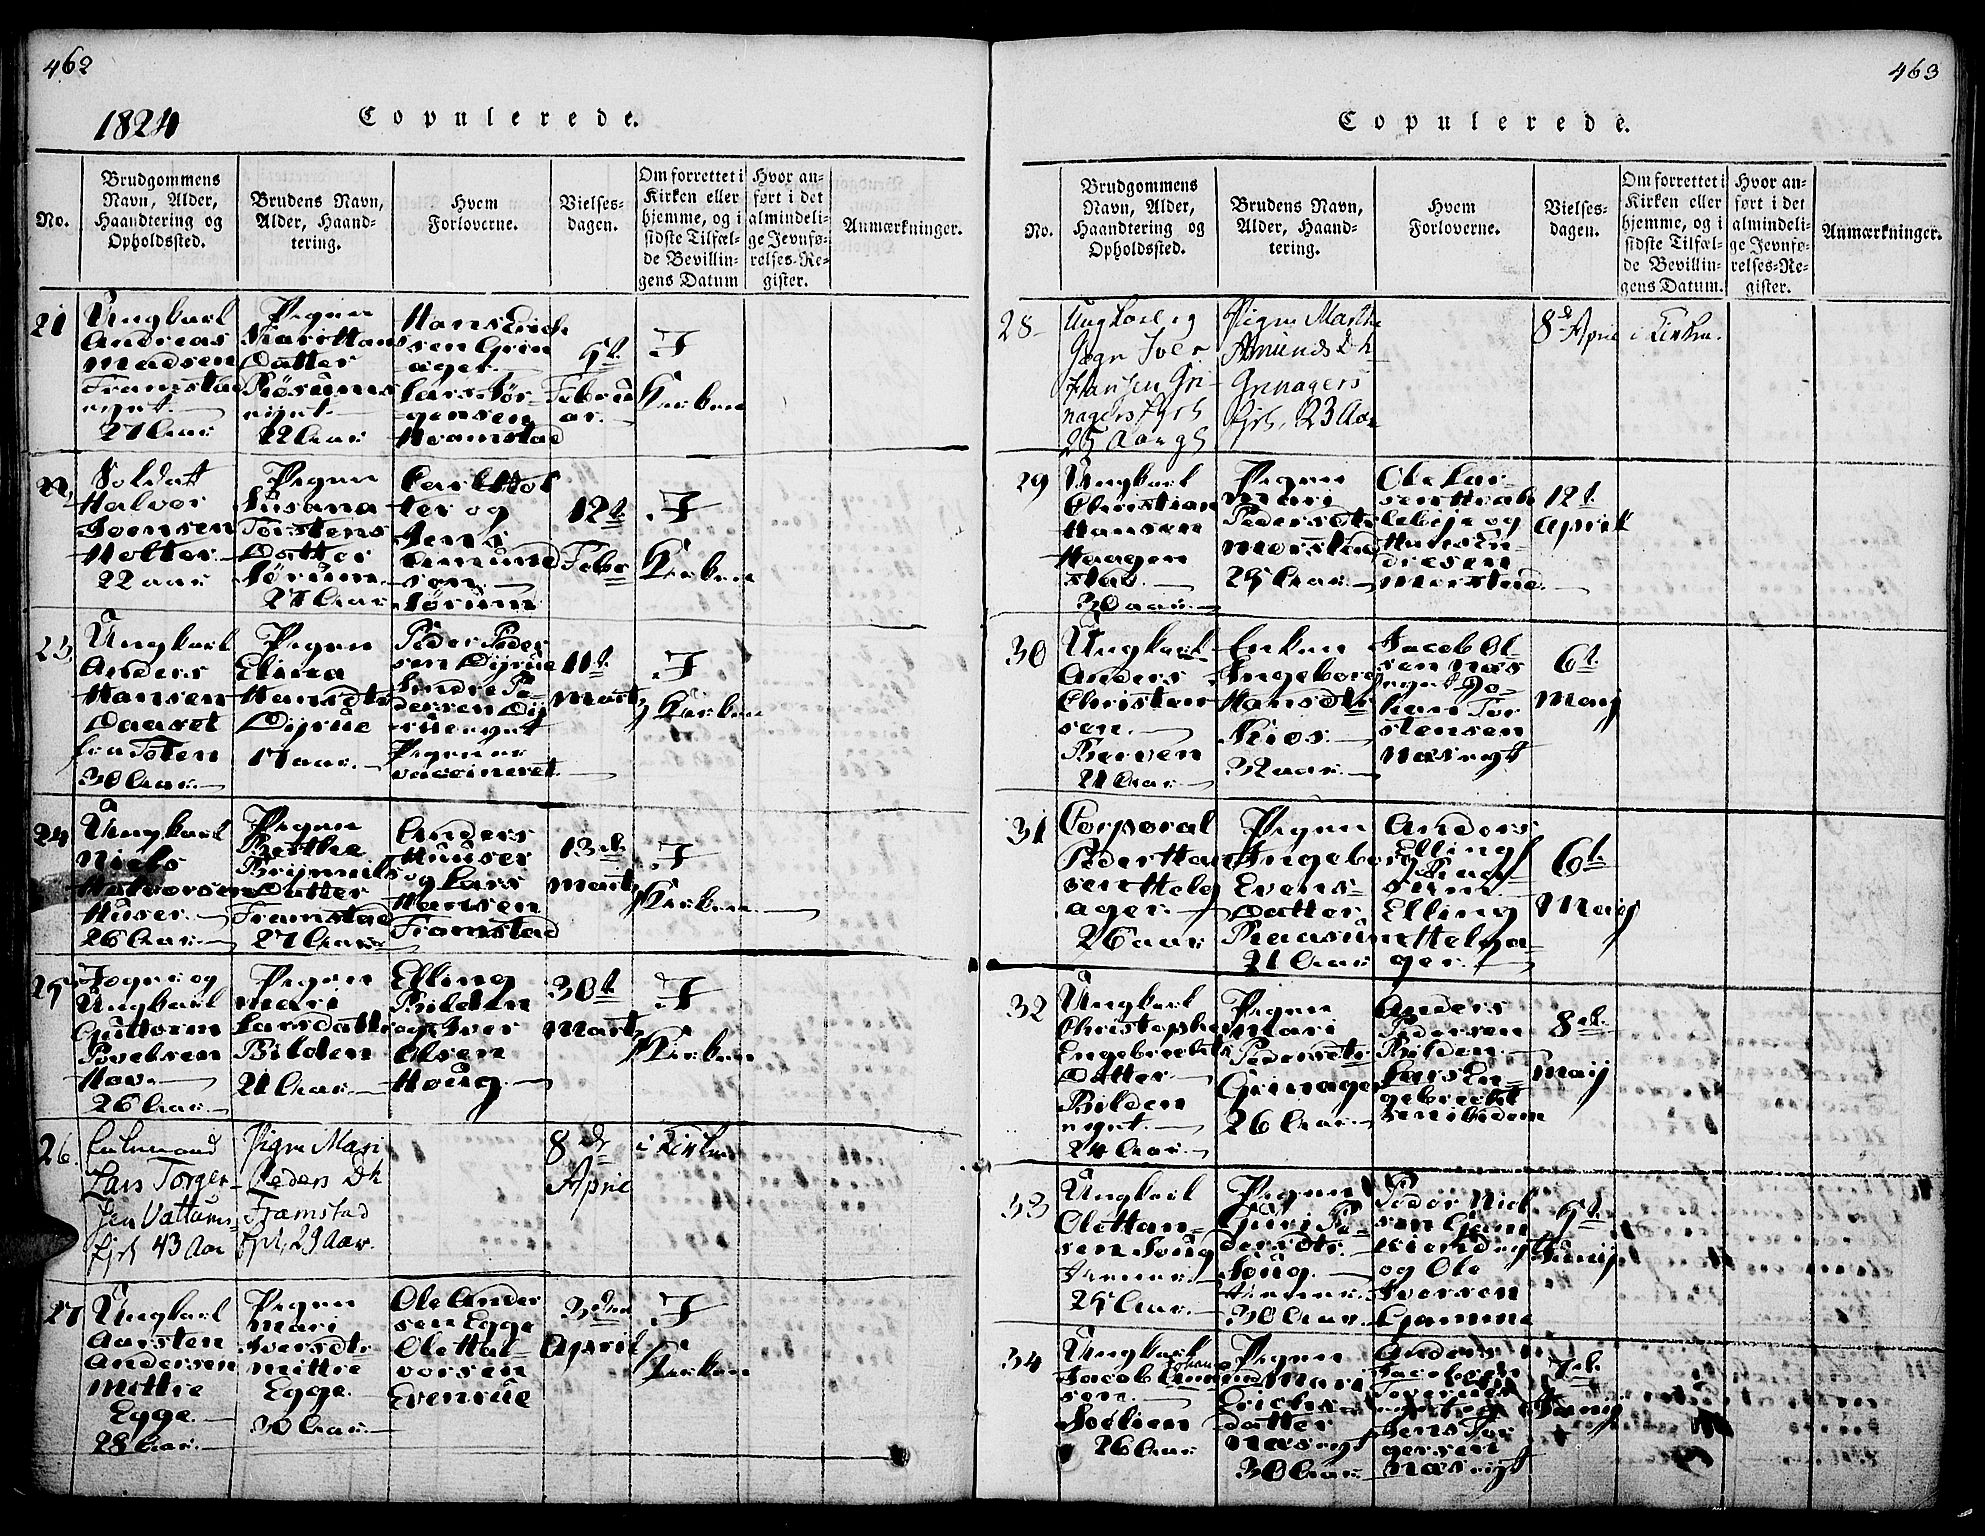 462
1824
Copulerede.
No.
Brudgommens
Navn, Alder,
Haandtering og
Opholdssted.
Brudens Navn,
Alder, Haand-
tering.
Hvem
Forloverne.
Vielses-
dagen.
Om forrettet i
Kirken eller
hjemme, og i
sidste Tilfæl-
de Bevillin-
gens Datum
Hvor an-
ført i det
almindeli-
ge Jevnfø-
relses-Re-
gister.
Anmærkninger.
21
Ungkarl
Andreas
Madsen
Framstad
eiget
27 Aar
Pigen
Datter
eiget
22 Aar
Hans Erich
sen Grin
ager
Lars Jør
gensen
Framstad
5t.
Februar
I
Kirken
22,
Soldatt
Halvor
Joensen
Holter
22 aar
Pigen
Susana
Torstens
Datter
Sørum
27 Aar
Carl Hol
ter og
Jens
Amund
sen
Sørum
12t.
Febr
I
Kirken
23,
Ungkarl
Anders
Hansen
fra Toten
30 Aar
Pigen
Elina
Hansdtr
Dijrue
17 aar
Peder Peder
sen Dijrue
Pe-
dersen Dij
rue eiget
Pigen er
vaccineret
11t.
Marts
I
Kirken
24
Ungkarl
Niels
Halvorsen
Huser
26 Aar
Pigen
Berthe
Brijnnils
Datter
Framstad
27 Aar
Anders
Huuser
og Lars
Hansen
Framstad
13de
Marts
I
Kirken
25
Ungkarl
Guttorm
Povelsen
Hov
26 Aar
Pigen
Mari
Larsdatter
Bilden
21 Aar
Elling
Bilden
og Iver
Olsen
Houg
30t.
Marts
I
Kirken
26.
Enkemand
Lars Torger-
sen Vattums
Ejet 43 Aar
Pigen Mari
Peders Dtr
Framstad
Ejet, 29 Aar.
8de
April
i Kirken
27
Ungkarl
Aarsten
Andersen
Mittre
Egge
28 Aar
Pigen
Mari
Iversdtr
Mittre
Egge
30 Aar
Ole Ander
sen Egge
Ole Hal-
vorsen
Evenrue
3den
April
I
Kirken
463
Copulerede.
No.
Brudgommens
Navn, Alder,
Haandtering og
Opholdssted.
Brudens Navn,
Alder, Haand-
tering.
Hvem
Forloverne.
Vielses-
dagen.
Om forrettet i
Kirken eller
hjemme, og i
sidste Tilfæl-
de Bevillin-
gens Datum.
Hvor an-
ført i det
almindeli-
ge Jevnfø-
relses-Re-
gister.
Anmærkninger.
28
Ungkarl og
Iver
Hansen Gri-
nagers Ejet
25 Aar
Pigen Marthe
Amunds Dtr
Grinagers
Ejet, 23 Aar
8de April
i Kirken.
29
Ungkarl
Christian
Hansen
Haagen
stad
30 aar
Pigen
Mari
Pedersdtr
Morstad
25 Aar
Ole Lar
sen
og
Hans
Morstad
12t.
April
30
Ungkarl
Anders
Christen
sen
Berven
21 Aar
Enken
Ingeborg
Hansdtr
Kios
32 aar
Jacob Ol
sen Næs
eiget Jo-
han Tor
stensen
Næs eigt
6t.
Maij
31
Corporal
Peder Han
sen Helg
ager
26 aar
Pigen
Ingeborg
Evens-
datter
Raasum
21 Aar
Anders
Elling
Helga-
ger
6t.
Maij
32
Ungkarl
Christopher
Engebrechts
Datter
Bilden
eiget
24 Aar
Pigen
Mari
Pedersdtr
Grinager
26 Aar
Anders
Pedersen
Bilden
Lars En-
gebrecht
sen ibidem
8de
Maij
33
Ungkarl
Ole Han-
sen Soug
25 Aar
Pigen
Guri Pe-
dersdtr
Soug
30 Aar
Peder Niel
sen Gam
og Ole
Iversen
Gamme
5t.
Junij
34
Ungkarl
Jacob
sen
Solien
26 Aar
Pigen
Mari
Erichs
datter
Næs eigt
30 Aar
Anders
Jacobsen
Jens Tor
gersen
Næs eigt
7de
Junij